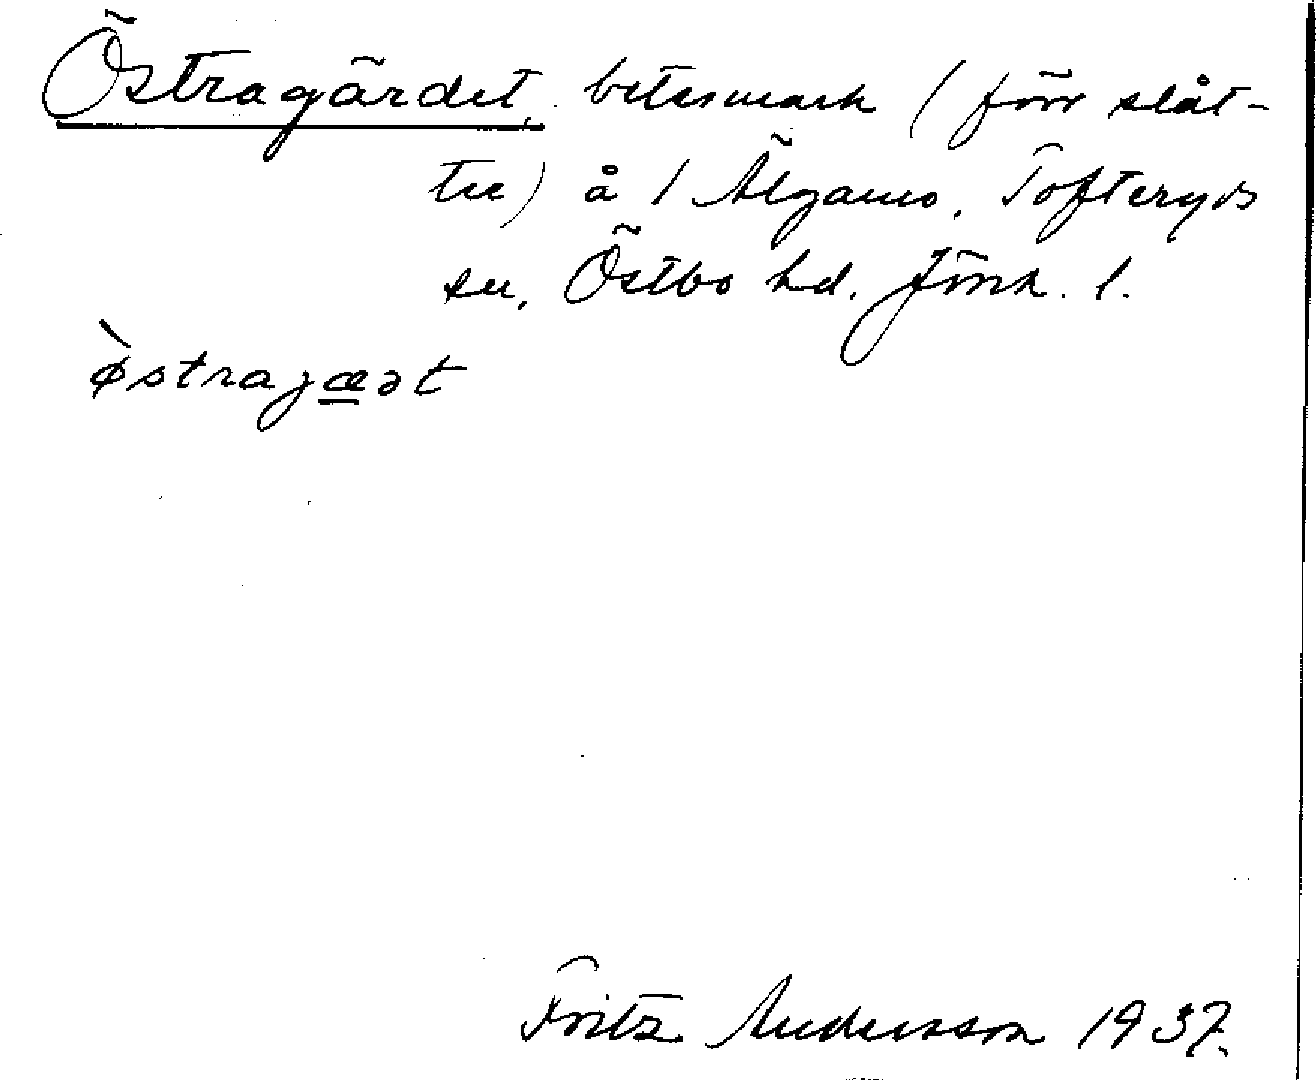 Östragärdet, betesmark (förr slåt-
ter) å 1 Älgamo, Tofteryds
sn, Östbo hd. Jönk. l.
østrajæət
Fritz Andersson 1937.